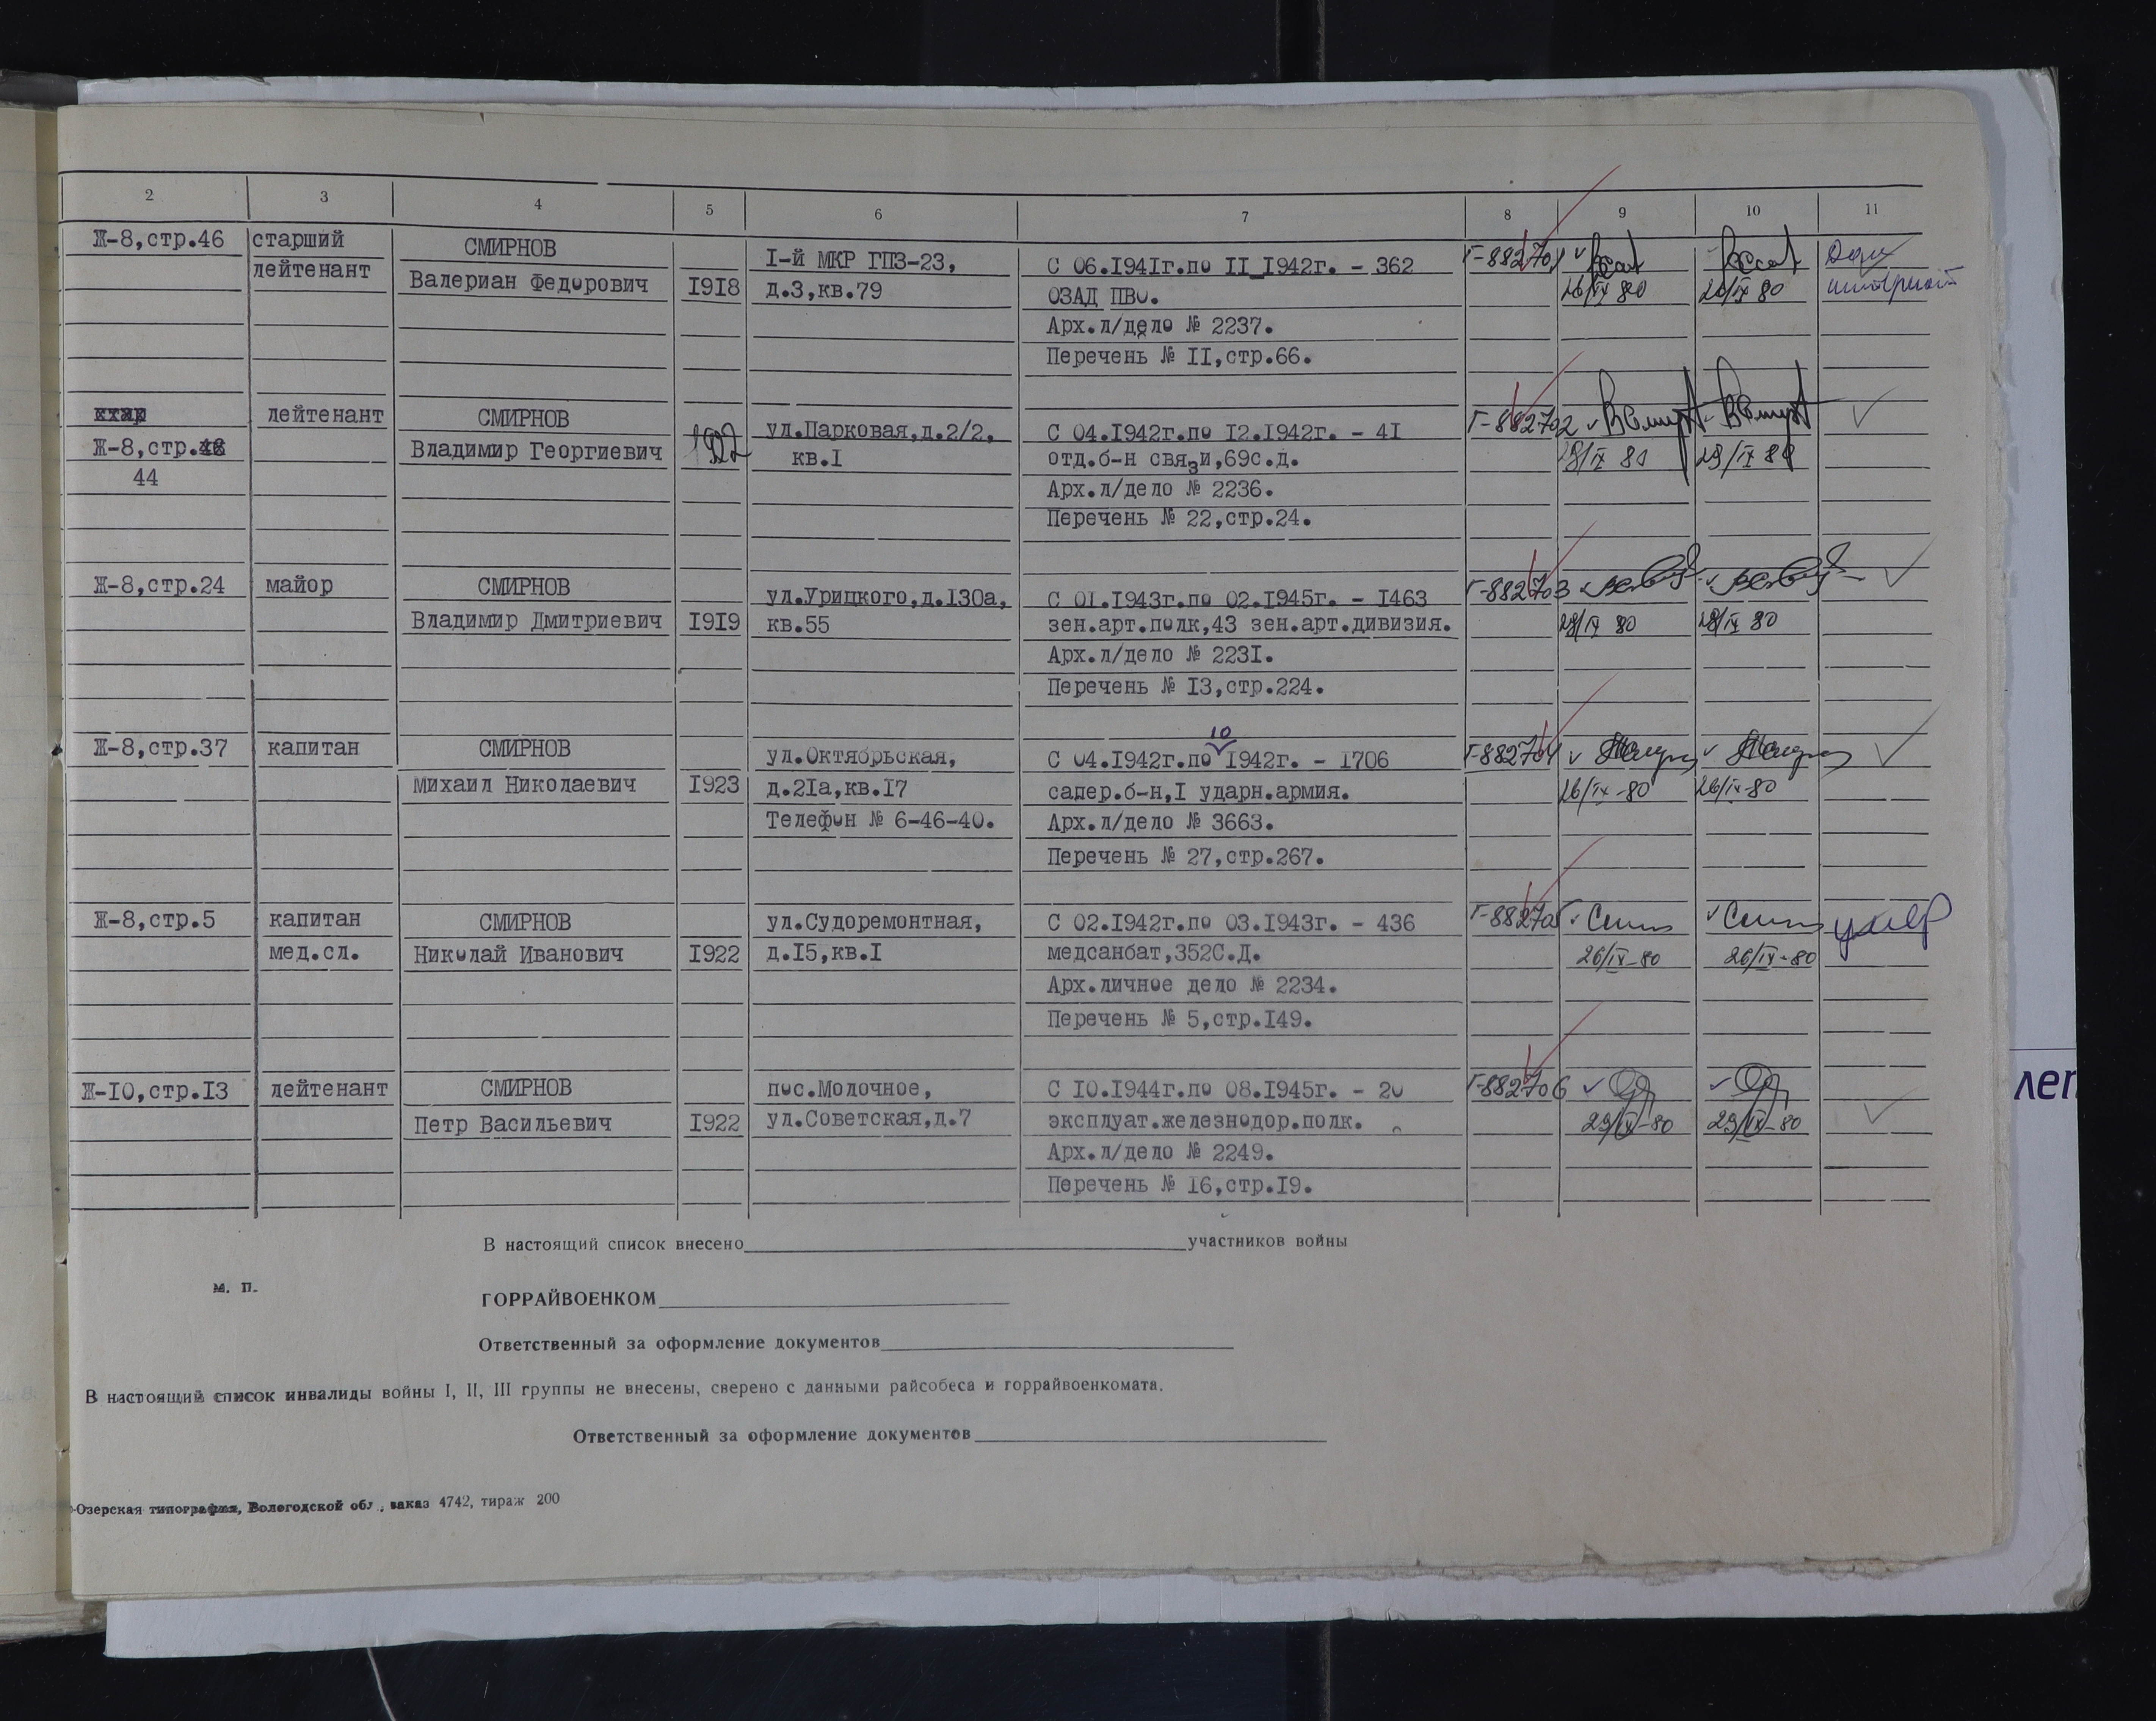 2 3 4 5 6 7 8 9 10 11
Ж-8,стр.46 старший СМИРНОВ I-й МКР ГПЗ-23, С 06.I94Iг.по II 1942г. - 362 Г-882701
лейтенант Валериан Федорович I9I8 д.3,кв.79 ОЗАД ПВО. 26/IX 80 26/IX 80
Арх.л/дело № 2237.
Перечень № II,стр.66.
лейтенант СМИРНОВ ул.Парковая,д.2/2, С 04.1942г.по I2.1942г. - 4I Г-882702
Ж-8,стр. Владимир Георгиевич 1922 кв.I отд.б-н связи,69с.д. 29/IX 80
44 Арх.л/дело № 2236.
Перечень № 22,стр.24.
Ж-8,стр.24 майор СМИРНОВ ул.Урицкого,д.I30а, С 0I.1943г.по 02.1945г. - I463 Г-882703
Владимир Дмитриевич I9I9 кв.55 зен.арт.полк,43 зен.арт.дивизия. 29/IX 80 29/IX 80
Арх.л/дело № 223I.
Перечень № I3,стр.224.
10
Ж-8,стр.37 капитан СМИРНОВ ул.Октябрьская, С 04.1942г.по 1942г. - I706 Г-882704
Михаил Николаевич I923 д.2Iа,кв.I7 сапер.б-н,I ударн.армия. 26/IX-80 26/IX-80
Телефон № 6-46-40. Арх.л/дело № 3663.
Перечень № 27,стр.267.
Ж-8,стр.5 капитан СМИРНОВ ул.Судоремонтная, С 02.1942г.по 03.1943г. - 436 Г-882705 умер
мед.сл. Николай Иванович I922 д.I5,кв.I медсанбат,352С.Д. 26/IX-80 26/IX-80
Арх.личное дело № 2234.
Перечень № 5,стр.I49.
Ж-I0,стр.I3 лейтенант СМИРНОВ пос.Молочное, С I0.1944г.по 08.1945г. - 20 Г-882706
Петр Васильевич I922 ул.Советская,д.7 эксплуат.железнодор.полк. 29/IX-80 29/IX-80
Арх.л/дело № 2249.
Перечень № I6,стр.I9.
В настоящий список внесено участников войны
м. п.
ГОРРАЙВОЕНКОМ
Ответственный за оформление документов
В настоящий список инвалиды войны I, II, III группы не внесены, сверено с данными райсобеса и горрайвоенкомата.
Ответственный за оформление документов
-Озерская типография, Вологодской обл., заказ 4742, тираж 200